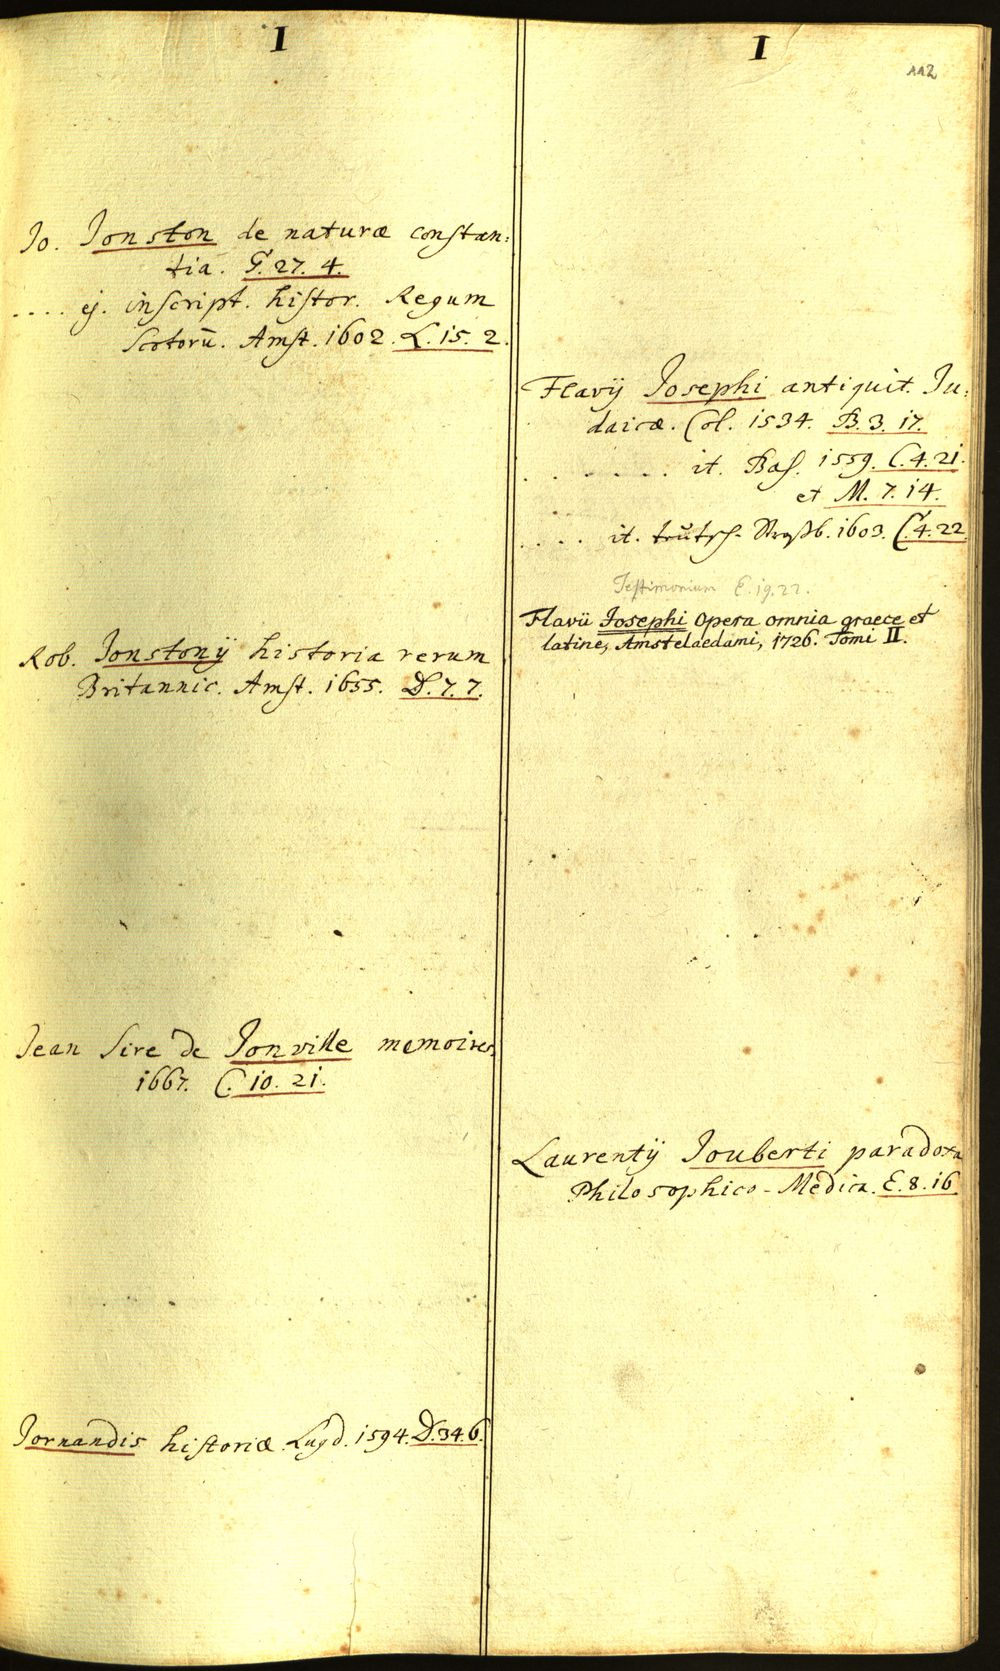 I
Jo. Jonston de naturæ constan:
tia. G. 27. 4.
.... ej. inscript. histor. Regum
Scotorū. Amst. 1602. L. 15. 2.
Rob. Jonstonij historia rerum
Britannic. Amst. 1655. D. 7. 7.
Jean Sire de Jonville memoires
1667. C. 10. 21.
Jornandis historiæ. Lugd. 1594. D. 34. 6.
I
112
Flavij Josephi antiquit. Ju:
daicæ. Col. 1534. B. 3. 17.
. . . . . . it. Bas. 1559. C. 4. 21.
et M. 7. 14.
.... it. teutsch. Straßb. 1603. C. 4. 22
Testimonium E. 19. 22.
Flavii Josephi Opera omnia graece et
latine, Amstelaedami, 1726. Tomi II.
Laurentij Jouberti paradoxa
Philosophico-Medica. E. 8. 16